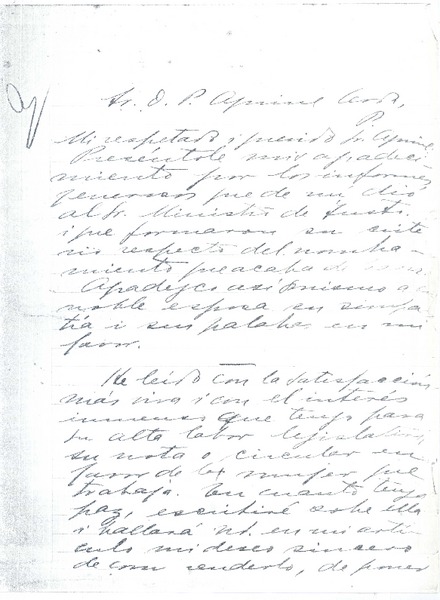 Sr. D. P. Aguirre Cerda,
P.
Mi respetado i querido Sr. Aguirre
Preséntole mis agradeci-
mientos por los informes
generosos que de mí dio
al Sr. Ministro de Insti.
i que formaron su crite
rio respecto del nombra-
miento que acaba de
Agradezco asimismo a
noble esposa su simpa
tía i sus palabras en mi
favor.
He leído con la satisfacción
más viva i con el interés
inmenso que tengo para
su alta labor legislativa,
su nota o circular en
favor de la mujer que
trabaja. En cuanto tenga
paz, escribiré sobre ella
i hallará Ud. en mi artí-
culo mi deseo sincero
de com, de poner